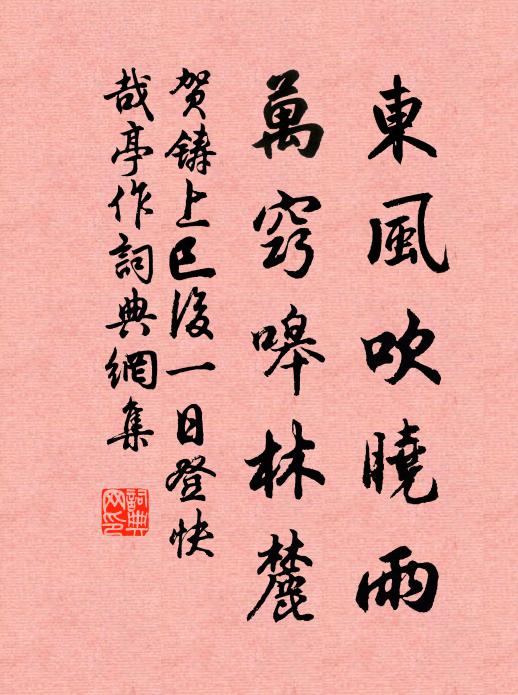 東風吹曉雨
萬竅嘷林麓
賀鑄上巳後一日登快
哉亭作詞典網集
詞典網印